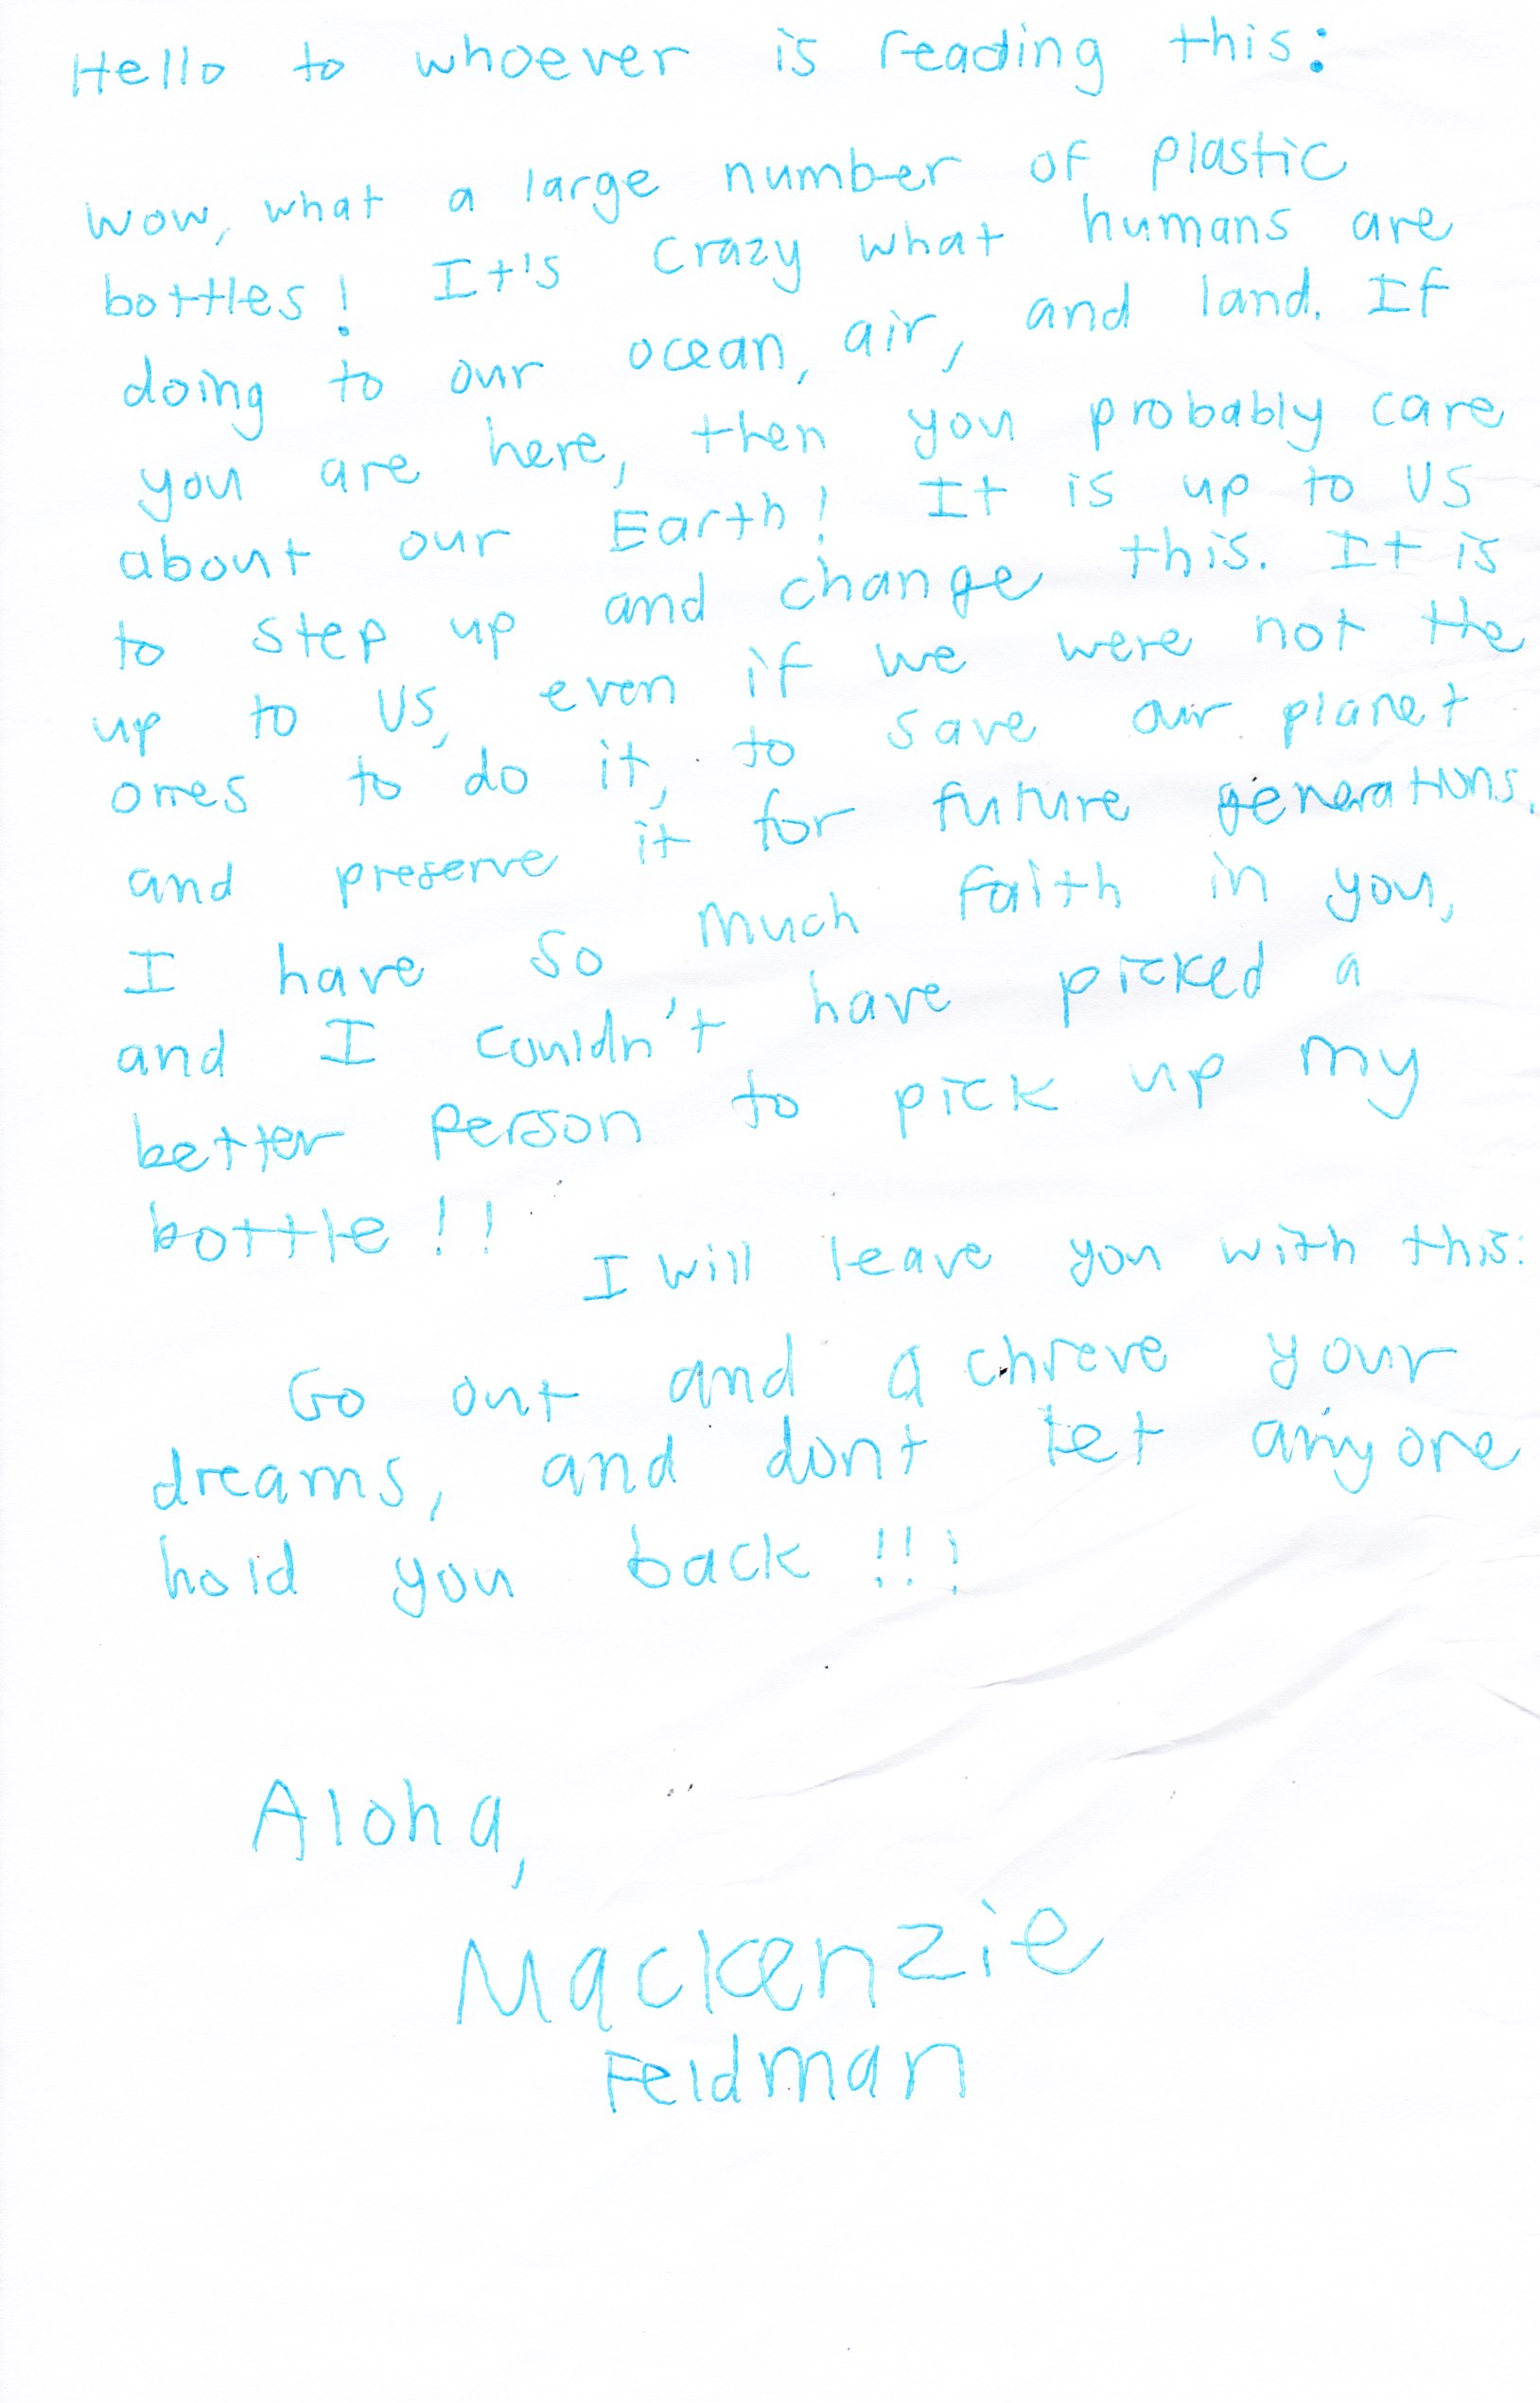 Hello to whoever is reading this:
Wow, what a large number of plastic
bottles! It's crazy what humans are
doing to our ocean, air, and land. If
you are here, then you probably care
about our Earth! It is up to US
to step up and change this. It is
up to US, even if we were not the
ones to do it, to save our planet
and preserve it for future generations.
I have so much faith in you,
and I couldn't have picked a
better person to pick up my
bottle!!
I will leave you with this:
Go out and achieve your
dreams, and dont let anyone
hold you back!!!
Aloha,
Mackenzie
Feldman